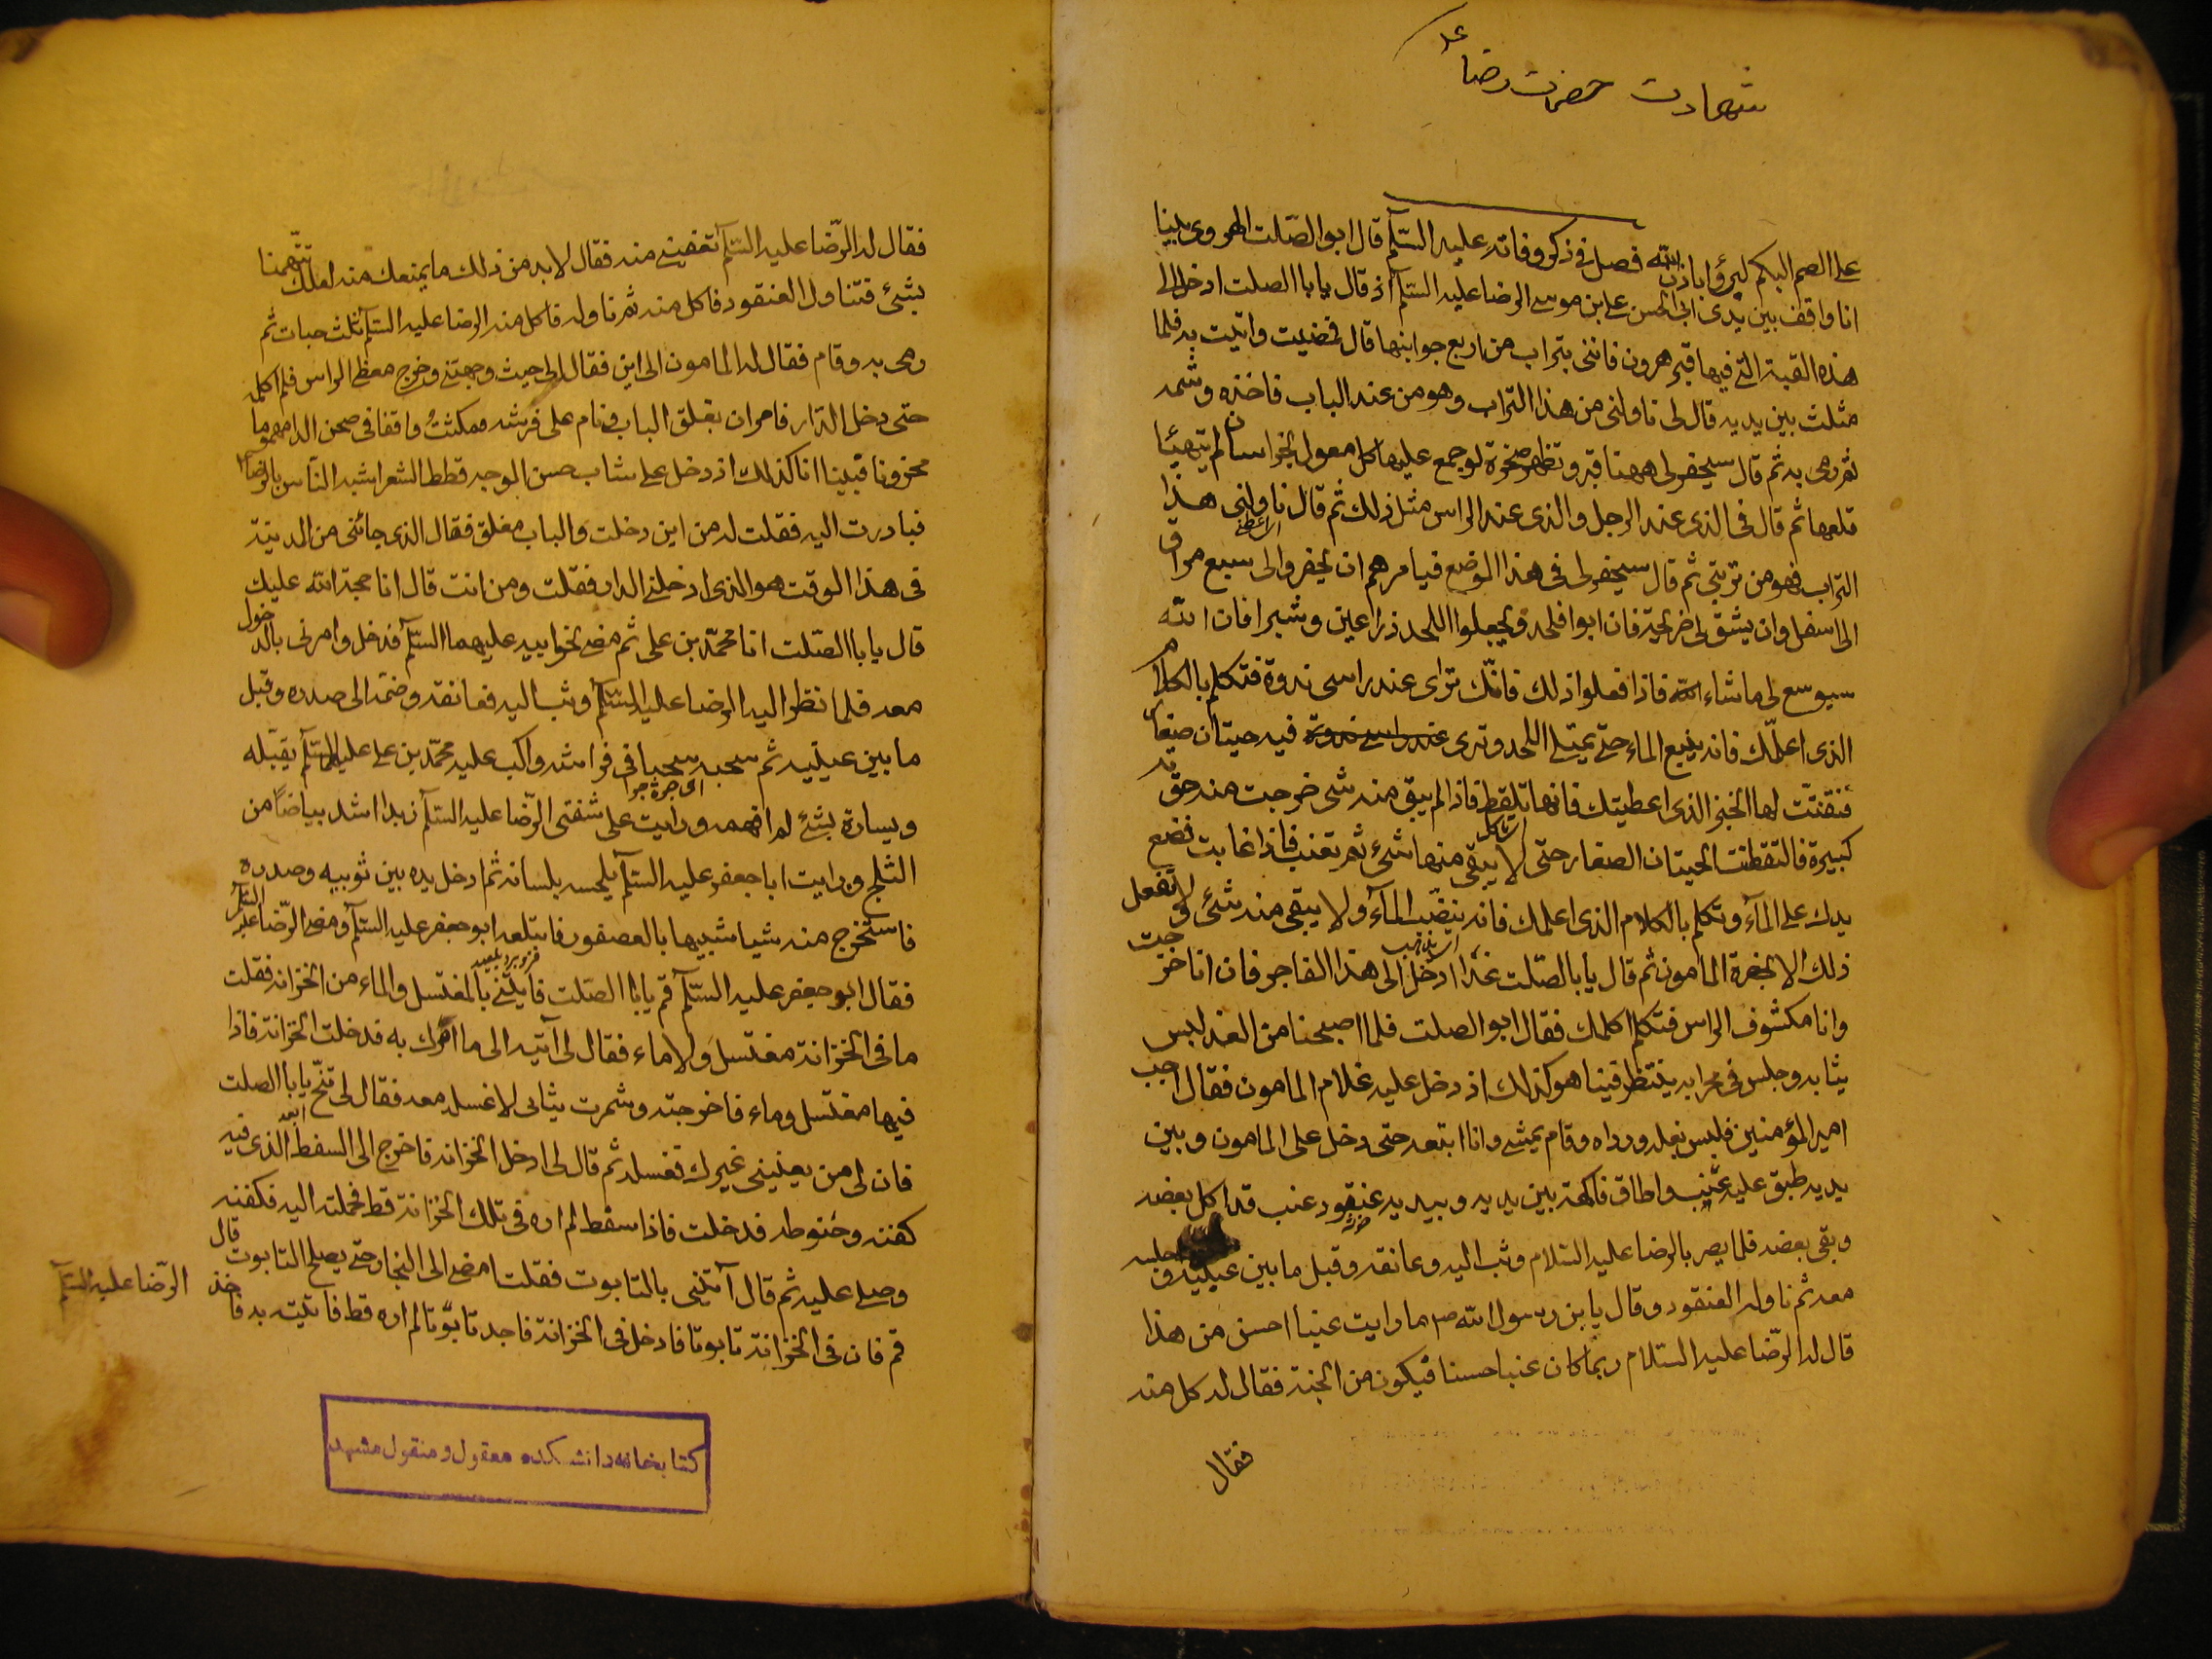 شهادت حضرت رضا ع
على الصم البكم ليبرؤا باذن الله فصل فى ذكر وفاته عليه السلام قال ابو الصلت الهروى بينا
انا واقف بين يدى ابى الحسن على بن موسى الرضا عليه السلام اذ قال يا با الصلت ادخل الى
هذه القبة التى فيها قبر هرون فائتنى بتراب من اربع جوانبها قال فمضيت واتيت به فلما
مثلت بين يديه قال لى ناولنى من هذا التراب وهو من عند الباب فاخذه وشمه
ثم رمى به ثم قال سيحفر لى ههنا قبر وتظهر صخرة لو جمع عليها كل معول بخراسان لم يتهيئا
قلعها ثم قال فى الذى عند الرجل والذى عند الراس مثل ذلك ثم قال ناولنى هذا
التراب فهو من تربتى ثم قال سيحفر لى فى هذا الموضع فيامرهم ان يحفروا لى سبع مراق
الى اسفل وان يشق لى ضريحة فان ابوا فلحد ويجعلوا اللحد ذراعين وشبرا فان الله
سيوسع لى ما شاء الله فاذا فعلوا ذلك فانك ترى عند راسى ندوة فتكلم بالكلام
الذى اعلمك فانه ينبع الماء حتى يمتلى اللحد وترى فيه حيتان صغار
فتفتت لها الخبز الذى اعطيتك فانها تلتقط فاذا لم يبق منه شى خرجت منه حوت
كبيرة فالتقطت الحيتان الصغار حتى لا يبقى منها شىء ثم تغيب فاذا غابت فضع
يدك على المآء وتكلم بالكلام الذى اعلمك فانه ينضب المآء ولا يبقى منه شئ ولا تفعل
ذلك الا بحضرة المأمون ثم قال يا با الصلت غدا ادخل الى هذا الفاجر فان انا خرجت
وانا مكشوف الراس فتكلم اكلمك فقال ابو الصلت فلما اصبحنا من الغد لبس
ثيابه وجلس فى محرابه ينتظر فبينا هو كذلك اذ دخل عليه غلام المامون فقال اجب
امير المؤمنين فلبس نعله ورداه وقام يمشى وانا اتبعه حتى دخل على المامون وبين
يديه طبق عليه عنب واطاق فاكهة بين يديه وبيديه عنقود عنب قد اكل بعضه
وبقى بعضه فلما بصر بالرضا عليه السلام وثب اليه وعانقه وقبل ما بين عينيه و جلسه
معه ثم ناوله العنقود وقال يا بن رسول الله ص ما رايت عنبا احسن من هذا
قال له الرضا عليه السلام ربما كان عنبا حسنا فيكون من الجنة فقال له كل منه
فقال
فقال له الرضا عليه السلام تعفينى منه فقال لا بد من ذلك ما يمنعك منه لعلك تتهمنا
بشئ فتناول العنقود فاكل منه ثم ناوله فاكل منه الرضا عليه السلام ثلث حبات ثم
رمى به وقام فقال له المامون الى اين فقال الى حيث وجهتنى وخرج مغطى الراس فلم اكلمه
حتى دخل الدار فامر ان يغلق الباب فنام على فرشه ومكثت واقفا فى صحن الدار مهموما
محزونا فبينا انا كذلك اذ دخل على شاب حسن الوجه قطط الشعر اشبه الناس بالرضا ع
فبادرت اليه فقلت له من اين دخلت والباب مغلق فقال الذى جائنى من المدينة
فى هذا الوقت هو الذى ادخلنى الدار فقلت ومن انت قال انا حجة الله عليك
قال يا با الصلت انا محمد بن على ثم مضى نحو ابيه عليهما السلام فدخل وامرنى بالدخول
معه فلما نظر اليه الرضا عليه السلام وثب اليه فعانقه وضمه الى صدره وقبل
ما بين عينيه ثم سحبه سحبا فى فراشه واكب عليه محمد بن على عليه السلام يقبله
ويساره بشئ لم افهمه ورايت على شفتى الرضا عليه السلام زبدا اشد بياضا من
الثلج ورايت ابا جعفر عليه السلام يلحسه بلسانه ثم ادخل يده بين ثوبيه وصدره
فاستخرج منه شيا شبيها بالعصفور فابتلعه ابو جعفر عليه السلام ومضى الرضا عليه السلام
فقال ابو جعفر عليه السلام قم يا با الصلت فائتنى بالمغتسل والماء من الخزانه فقلت
ما فى الخزانة مغتسل ولا ماء فقال لى آتيه الى ما امرك به فدخلت الخزانة فاذا
فيها مغتسل وماء فاخرجته وشمرت ثيابى لاغسله معه فقال لى تنح يا با الصلت
ابعد
فان لى من يعيننى غيرك فغسله ثم قال لى ادخل الخزانه فاخرج الى السفط الذى فيه
كفنه وحنوطه فدخلت فاذا سفط لم اره فى تلك الخزانة قط فحملته اليه فكفنه
وصلى عليه ثم قال آتينى بالتابوت فقلت امضى الى النجار حتى يصلح التابوت قال
قم فان فى الخزانة تابوتا فادخل فى الخزانة فاجد تابوتا لم اره قط فاتيت به فاخذ
الرضا عليه السلام
كتابخانه دانشكده معقول و منقول مشهد